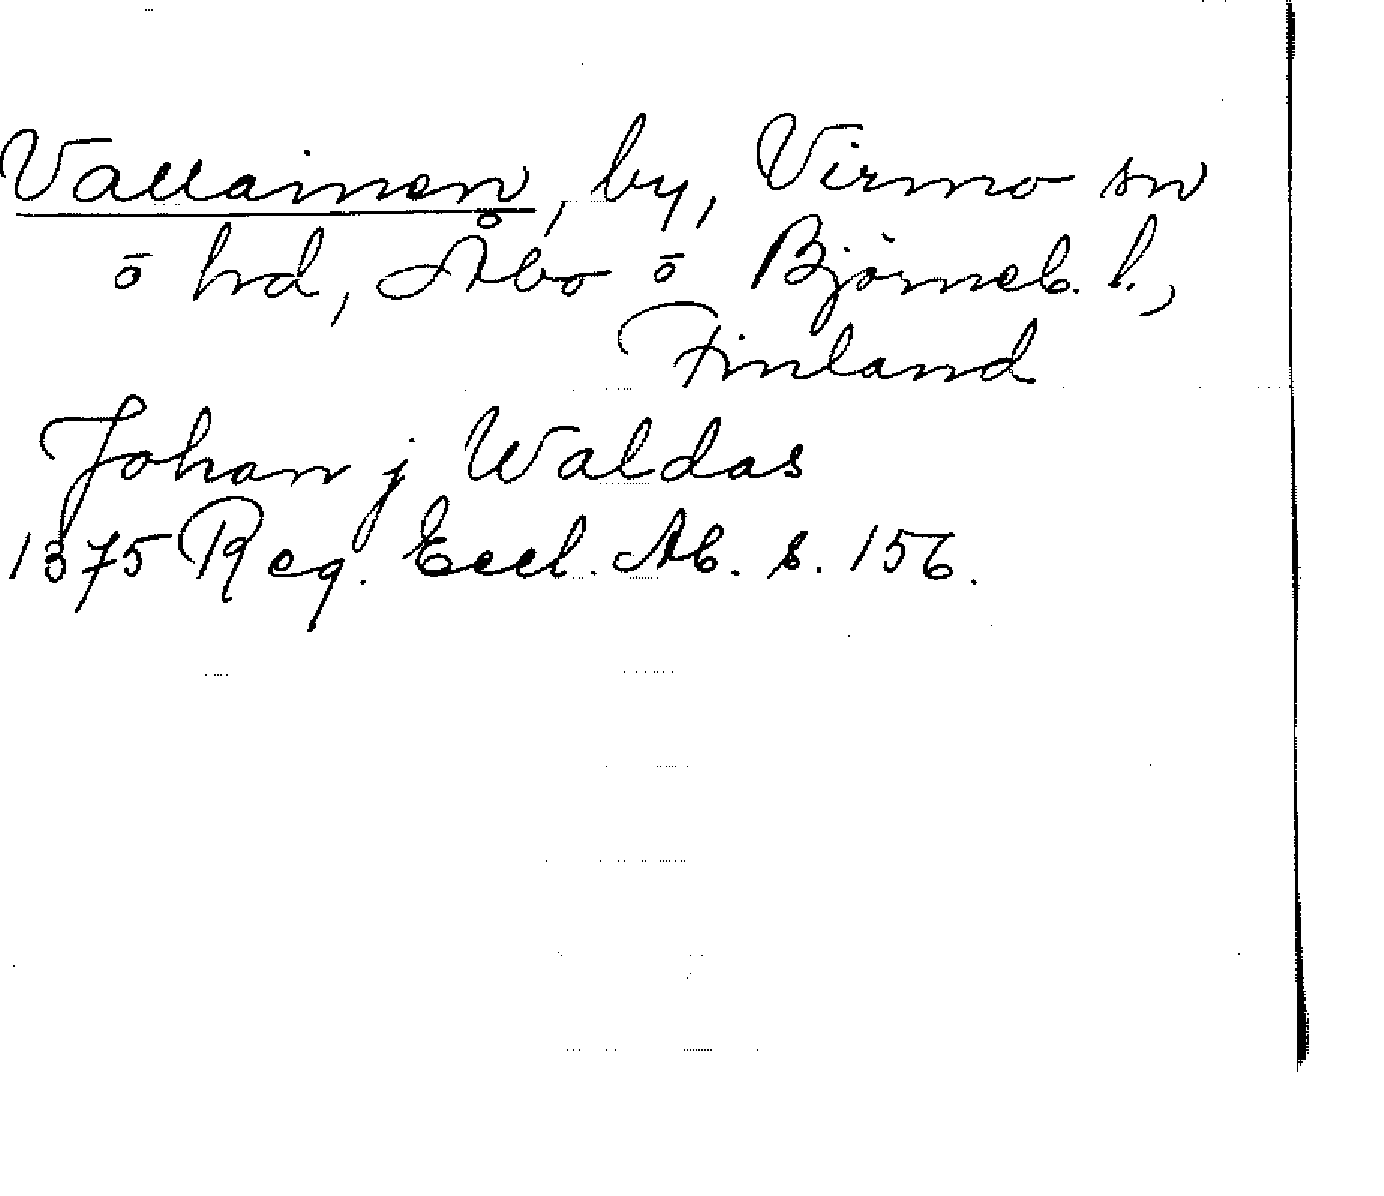 Vallainen, by, Virmo sn
o hd, Åbo o Björneb. l.,
Finland
Johan j Waldas
1375 Reg. Eccl. Ab. s. 156.